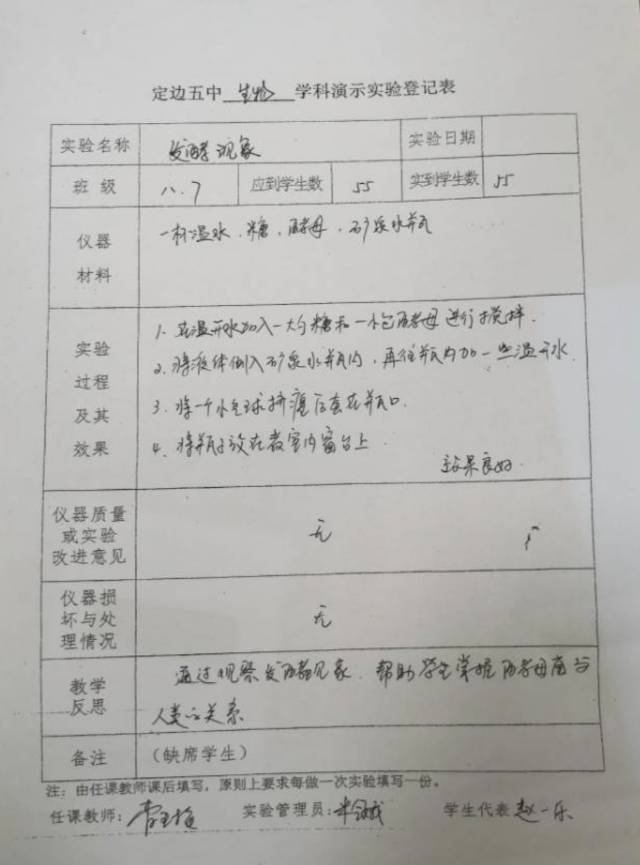 定边五中 生物 学科演示实验登记表
实验名称 发酵现象 实验日期
班 级 八.7 应到学生数 55 实到学生数 55
仪器
材料
一杯温水、糖、酵母、矿泉水瓶
实验
过程
及其
效果
1. 在温开水加入一大勺糖和一小包酵母进行搅拌.
2. 将液体倒入矿泉水瓶内，再往瓶内加一些温开水
3. 将一个小气球挤瘪后套在瓶口.
4. 将瓶子放在教室内窗台上
效果良好
仪器质量
或实验
改进意见
无
仪器损
坏与处
理情况
无
教学
反思
通过观察发酵现象，帮助学生掌握酵母菌与
人类的关系
备注 （缺席学生）
注：由任课教师课后填写，原则上要求每做一次实验填写一份。
任课教师： 实验管理员： 学生代表 赵一乐